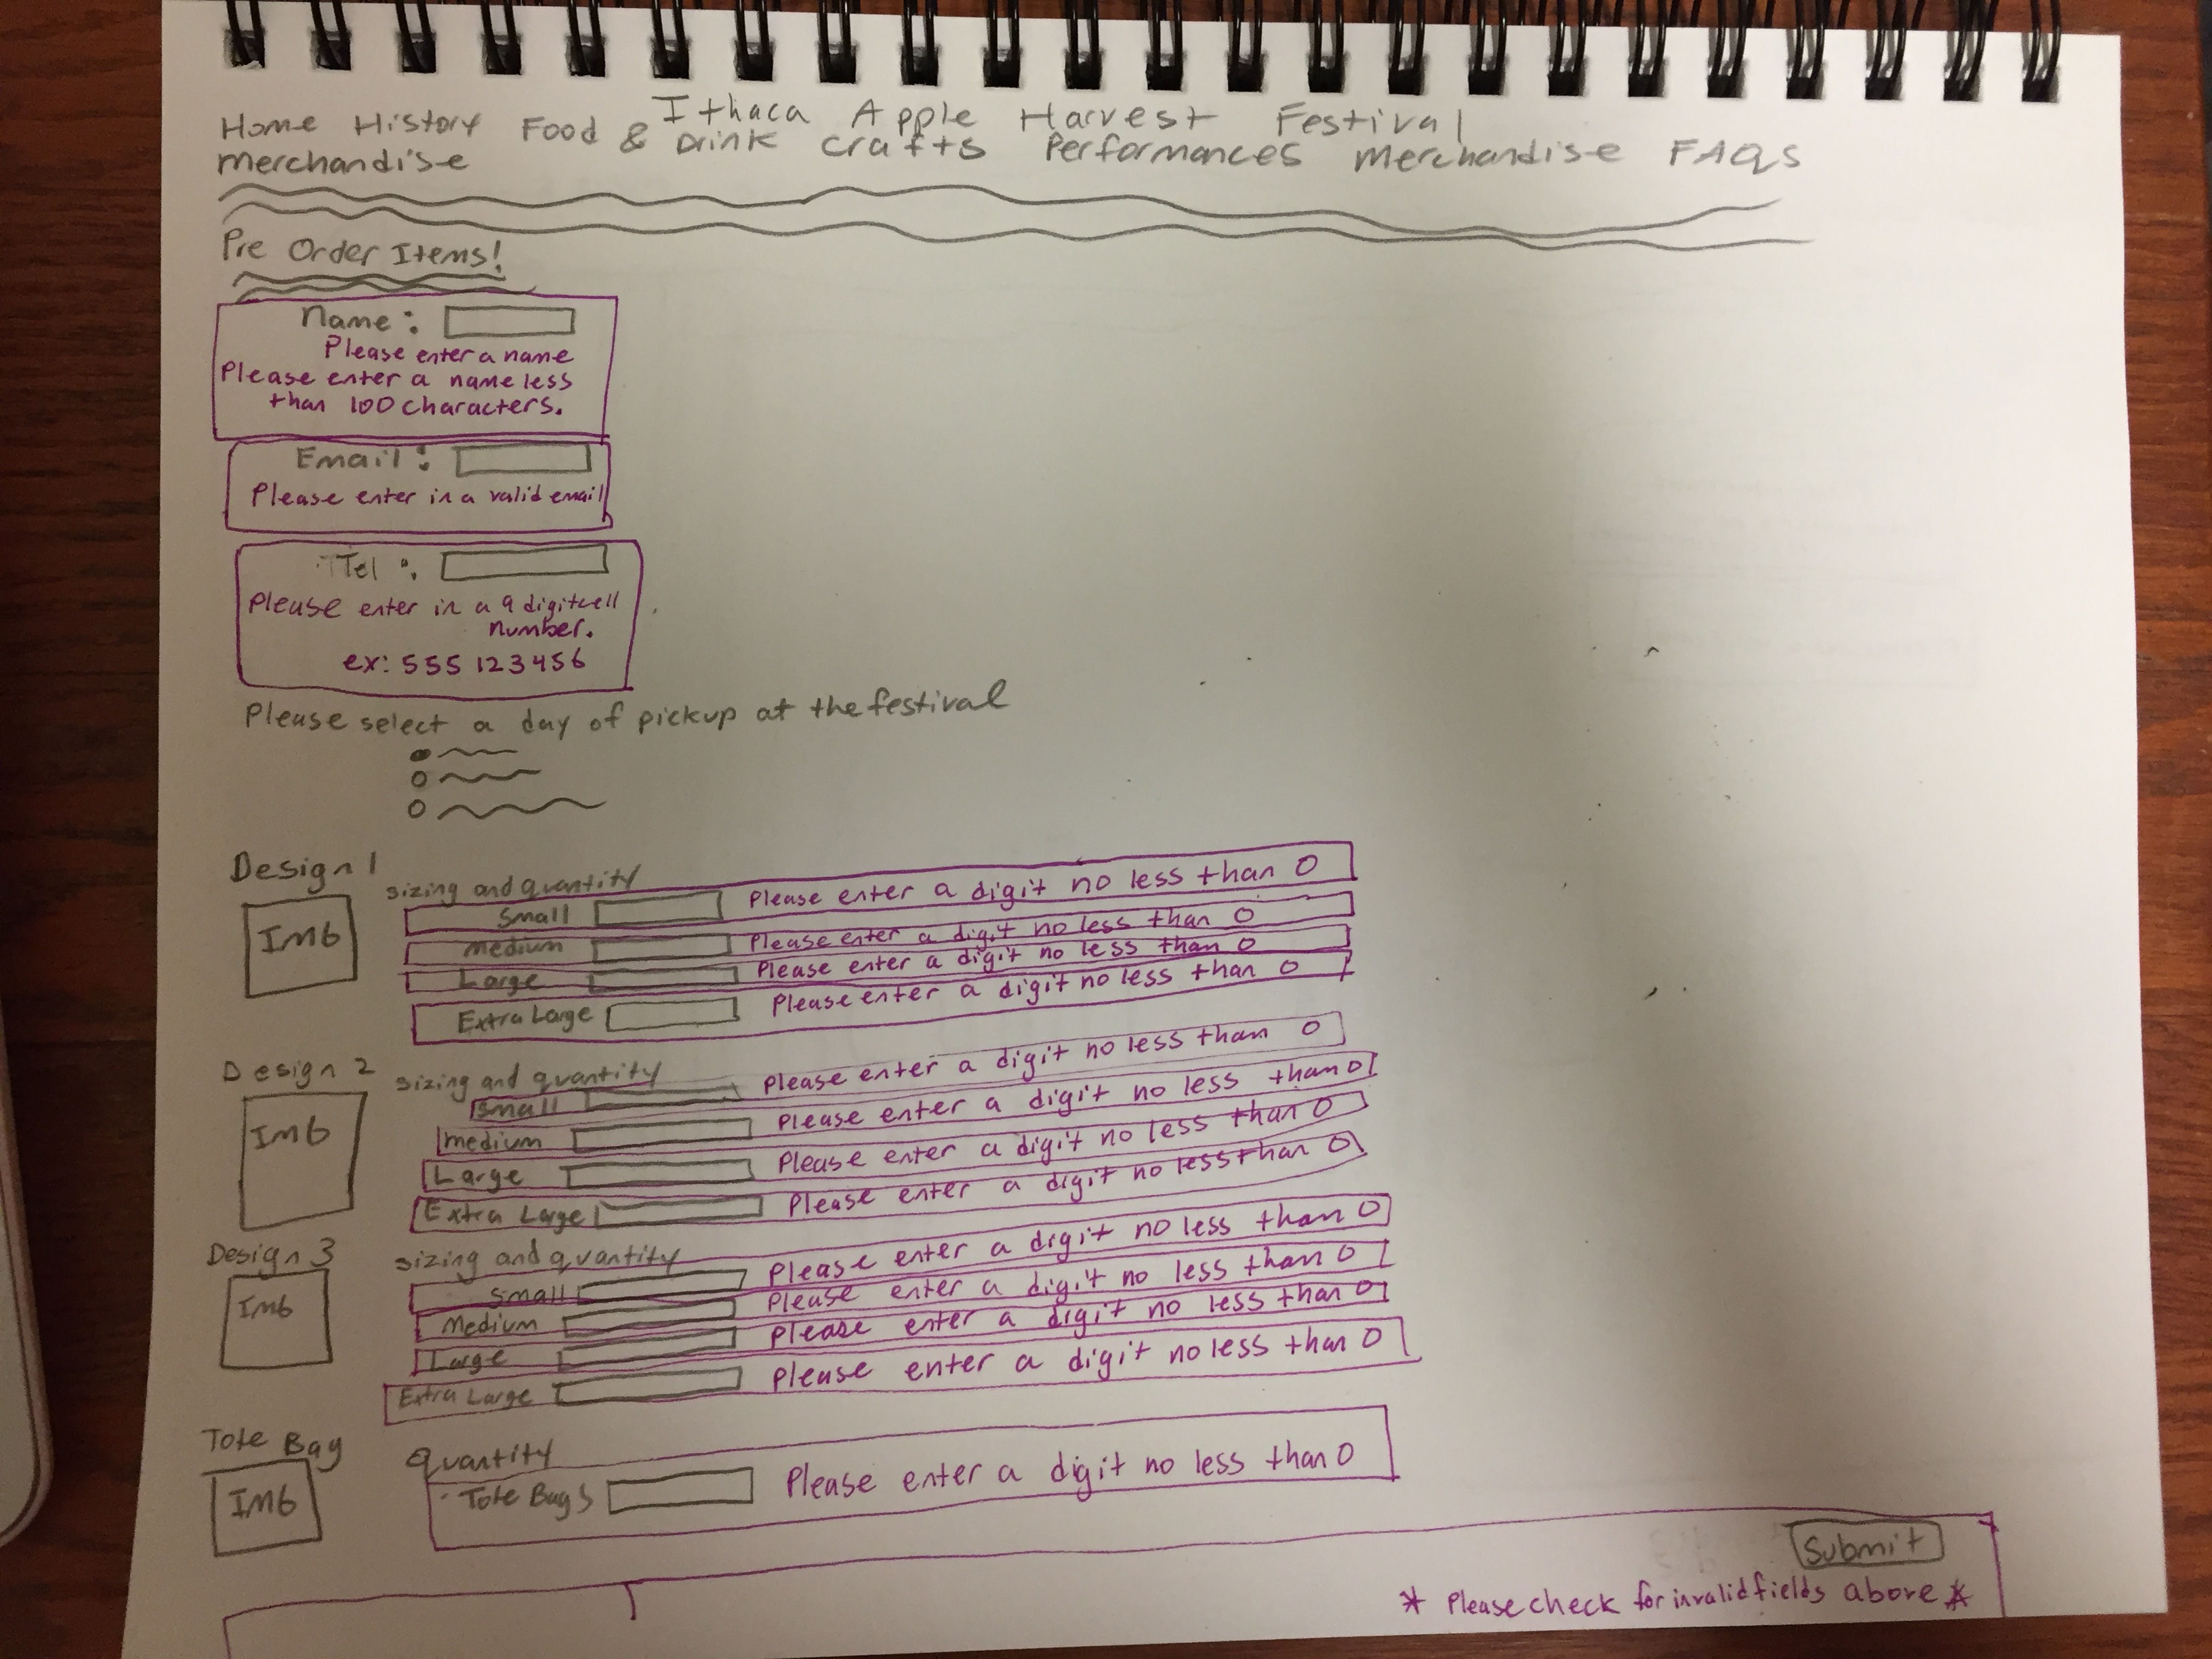 Ithaca Apple Harvest Festival
Home History Food & Drink Crafts Performances Merchandise FAQs
Merchandise
Pre Order Items!
Name:
Please enter a name
Please enter a name less
than 100 characters.
Email:
Please enter in a valid email
Tel:
Please enter in a 9 digit cell
number.
ex: 555 123456
Please select a day of pickup at the festival
Design 1
sizing and quantity
IMG
Small Please enter a digit no less than 0
Medium Please enter a digit no less than 0
Large Please enter a digit no less than 0
Extra Large Please enter a digit no less than 0
Design 2
sizing and quantity
IMG
Small Please enter a digit no less than 0
Medium Please enter a digit no less than 0
Large Please enter a digit no less than 0
Extra Large Please enter a digit no less than 0
Design 3
sizing and quantity
IMG
Small Please enter a digit no less than 0
Medium Please enter a digit no less than 0
Large Please enter a digit no less than 0
Extra Large Please enter a digit no less than 0
Tote Bag
quantity
IMG
Tote Bags Please enter a digit no less than 0
Submit
* Please check for invalid fields above *